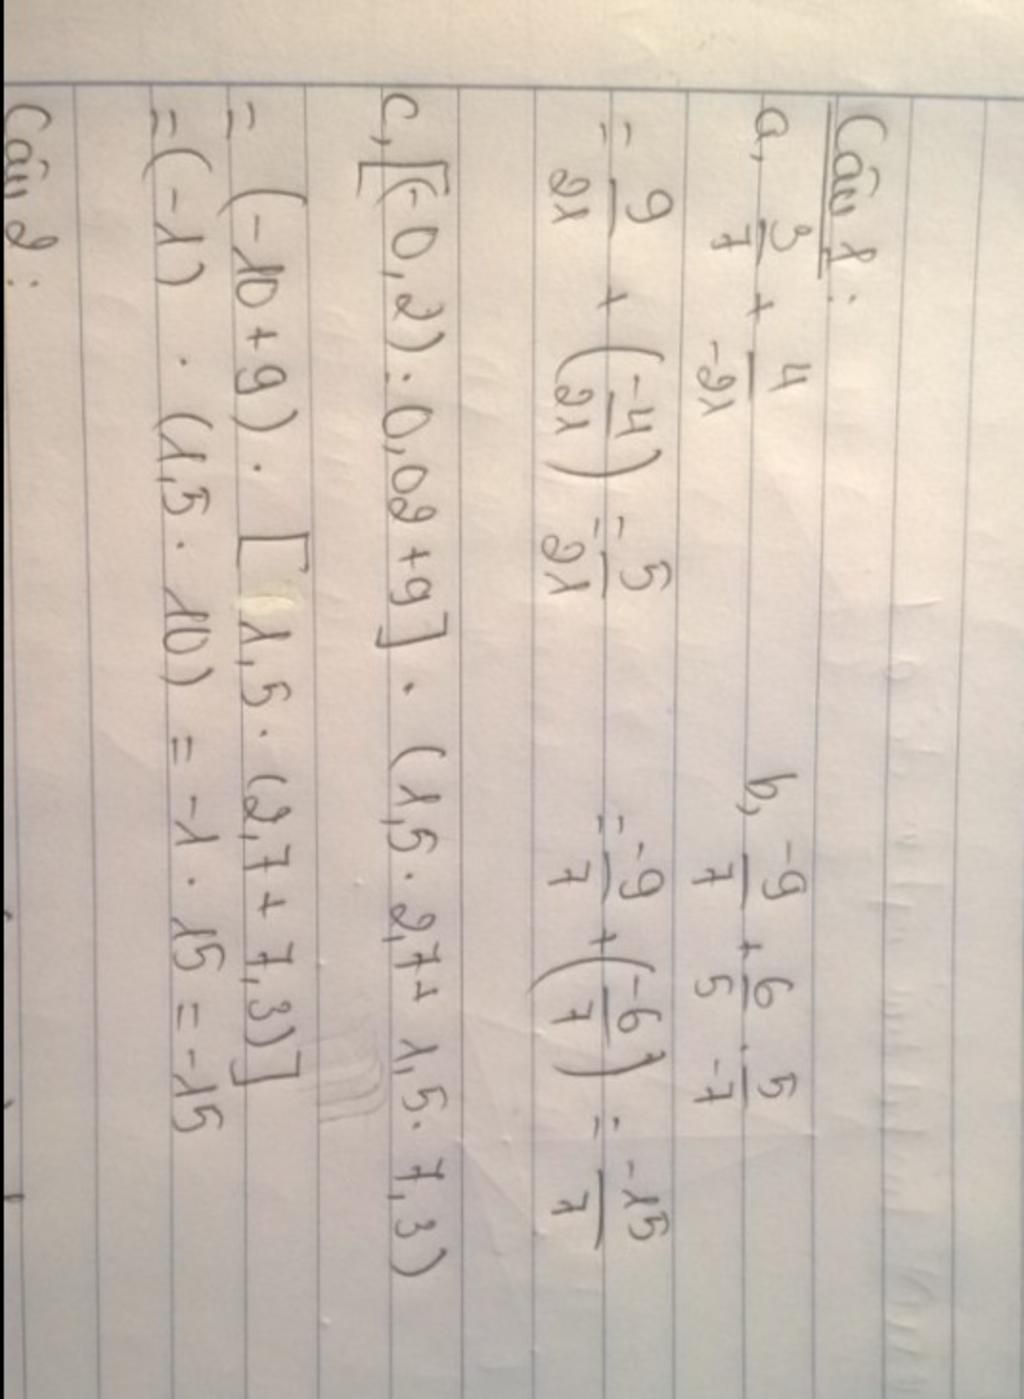 Câu 1:
a, 3/7 + 4/-21 b, -9/7 + 6/5 . 5/-7
= 9/21 + (-4/21) = 5/21 = -9/7 + (-6/7) = -15/7
c, [(-0,2) : 0,02 + 9] . (1,5 . 2,7 + 1,5 . 7,3)
= (-10 + 9) . [1,5 . (2,7 + 7,3)]
= (-1) . (1,5 . 10) = -1 . 15 = -15
Câu 2: